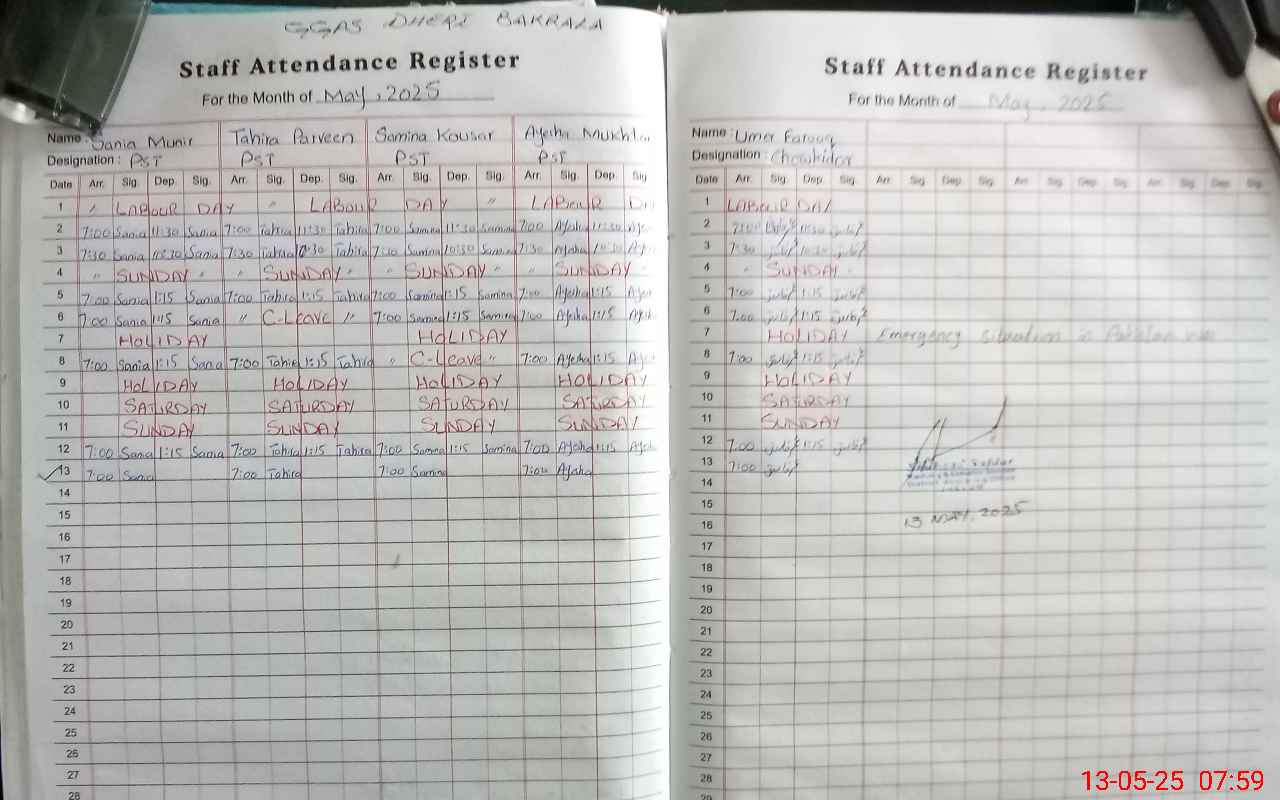 GGAS DHERI BAKRALA
Staff Attendance Register
For the Month of May, 2025
Name: Sania Munir Tahira Parveen Samina Kousar Ayesha Mukht
Designation: PST PST PST PST
Date Arr. Sig. Dep. Sig. Arr. Sig. Dep. Sig. Arr. Sig. Dep. Sig. Arr. Sig. Dep. Sig
1 " LABOUR DAY " LABOUR DAY " LABOUR D
2 7:00 Sania 11:30 Sania 7:00 Tahira 11:30 Tahira 7:00 Samina 11:30 Samina 7:00 Ayesha 11:30
3 7:30 Sania 10:30 Sania 7:30 Tahira 10:30 Tahira 7:30 Samina 10:30 Samina 7:30 Ayesha 10:30
4 " SUNDAY " " SUNDAY " " SUNDAY " " SUNDAY "
5 7:00 Sania 1:15 Sania 7:00 Tahira 1:15 Tahira 7:00 Samina 1:15 Samina 7:00 Ayesha 1:15
6 7:00 Sania 1:15 Sania " C-Leave " 7:00 Samina 1:15 Samina 7:00 Ayesha 1:15
7 HOLIDAY HOLIDAY
8 7:00 Sania 1:15 Sania 7:00 Tahira 1:15 Tahira " C-Leave " 7:00 Ayesha 1:15
9 HOLIDAY HOLIDAY HOLIDAY HOLIDAY
10 SATURDAY SATURDAY SATURDAY SATURDAY
11 SUNDAY SUNDAY SUNDAY SUNDAY
12 7:00 Sania 1:15 Sania 7:00 Tahira 1:15 Tahira 7:00 Samina 1:15 Samina 7:00 Ayesha 1:15
13 7:00 Sania 7:00 Tahira 7:00 Samina 7:00 Ayesha
14
15
16
17
18
19
20
21
22
23
24
25
26
27
28
Staff Attendance Register
For the Month of May, 2025
Name: Umer Farooq
Designation: Chowkidar
Date Arr. Sig. Dep. Sig. Arr. Sig. Dep. Sig. Arr. Sig. Dep. Sig. Arr. Sig. Dep. Sig.
1 LABOUR DAY
2 7:00 11:30
3 7:30
4 " SUNDAY "
5 7:00 1:15
6 7:00 1:15
7 HOLIDAY Emergency situation in Pakistan
8 7:00 1:15
9 HOLIDAY
10 SATURDAY
11 SUNDAY
12 7:00 1:15
13 7:00
14
15
13 MAY, 2025
16
17
18
19
20
21
22
23
24
25
26
27
28
29
13-05-25 07:59